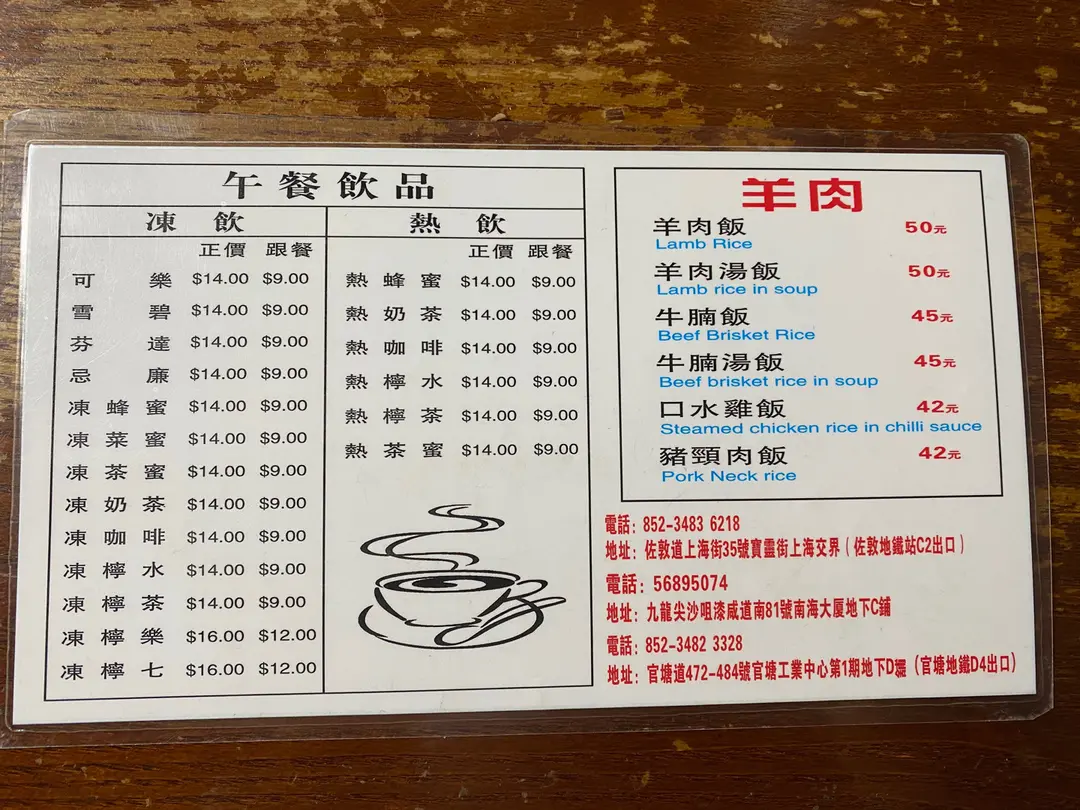 午餐飲品
凍飲
正價 跟餐
可樂 $14.00 $9.00
雪碧 $14.00 $9.00
芬達 $14.00 $9.00
忌廉 $14.00 $9.00
凍蜂蜜 $14.00 $9.00
凍菜蜜 $14.00 $9.00
凍茶蜜 $14.00 $9.00
凍奶茶 $14.00 $9.00
凍咖啡 $14.00 $9.00
凍檸水 $14.00 $9.00
凍檸茶 $14.00 $9.00
凍檸樂 $16.00 $12.00
凍檸七 $16.00 $12.00
熱飲
正價 跟餐
熱蜂蜜 $14.00 $9.00
熱奶茶 $14.00 $9.00
熱咖啡 $14.00 $9.00
熱檸水 $14.00 $9.00
熱檸茶 $14.00 $9.00
熱茶蜜 $14.00 $9.00
羊肉
羊肉飯 50元
Lamb Rice
羊肉湯飯 50元
Lamb rice in soup
牛腩飯 45元
Beef Brisket Rice
牛腩湯飯 45元
Beef brisket rice in soup
口水雞飯 42元
Steamed chicken rice in chilli sauce
豬頸肉飯 42元
Pork Neck rice
電話：852-3483 6218
地址：佐敦道上海街35號寶靈街上海交界（佐敦地鐵站C2出口）
電話：56895074
地址：九龍尖沙咀漆咸道南81號南海大厦地下C鋪
電話：852-3482 3328
地址：官塘道472-484號官塘工業中心第1期地下D（官塘地鐵D4出口）